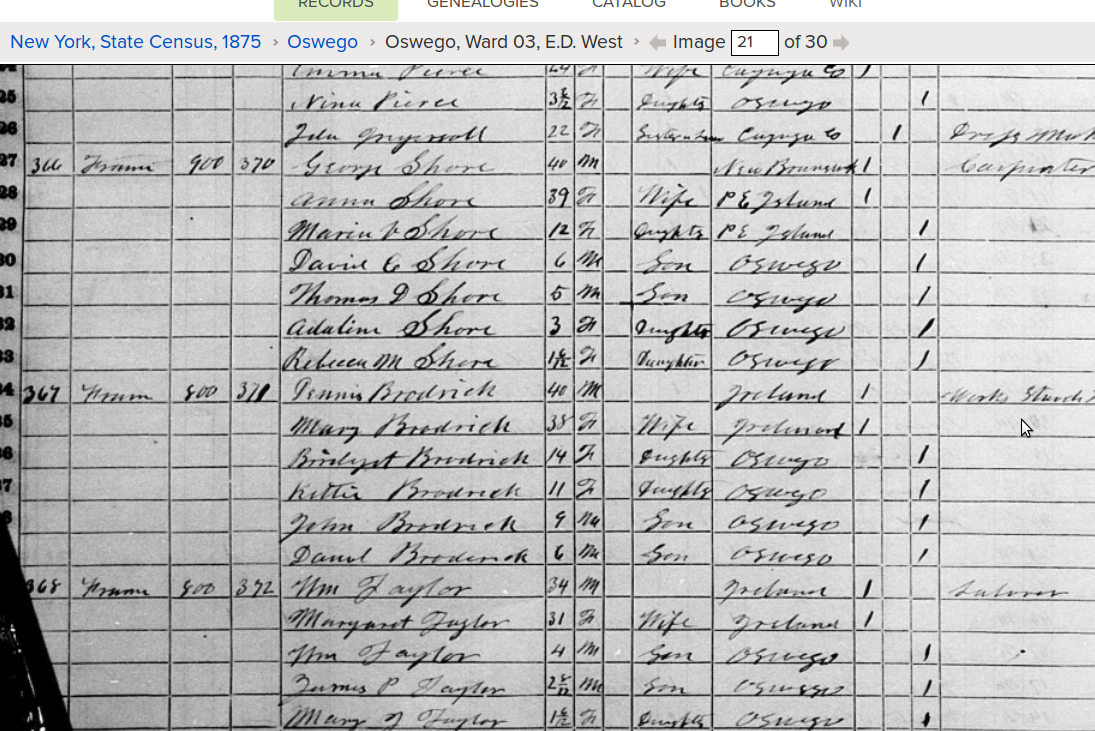 RECORDS GENEALOGIES CATALOG BOOKS WIKI
New York, State Census, 1875 › Oswego › Oswego, Ward 03, E.D. West › Image 21 of 30
Emma Pierce Wife Cayuga Co 1
25 Nina Pierce 3 Daughter Oswego 1
26 Ingersoll 22 F Cayuga Co 1
27 366 Frame 900 370 George Shore 40 M New Brunswick 1 Carpenter
28 Anna Shore 39 F Wife P E Island 1
29 Maria V Shore 12 F Daughter P E Island 1
30 David C Shore 6 M Son Oswego 1
31 Thomas D Shore 5 M Son Oswego 1
32 Adaline Shore 3 F Daughter Oswego 1
33 Rebecca M Shore F Daughter Oswego 1
34 367 Frame 800 371 Dennis Brodrick 40 M Ireland 1 Works
35 Mary Brodrick 38 F Wife Ireland 1
36 Bridget Brodrick 14 F Daughter Oswego 1
37 Kittie Brodrick 11 F Daughter Oswego 1
John Brodrick 9 M Son Oswego 1
Daniel Broderick 6 M Son Oswego 1
368 Frame 800 372 Wm Taylor 34 M Ireland 1
Margaret Taylor 31 F Wife Ireland 1
Wm Taylor 4 M Son Oswego 1
James P Taylor M Son Oswego 1
Mary J Taylor F Daughter Oswego 1